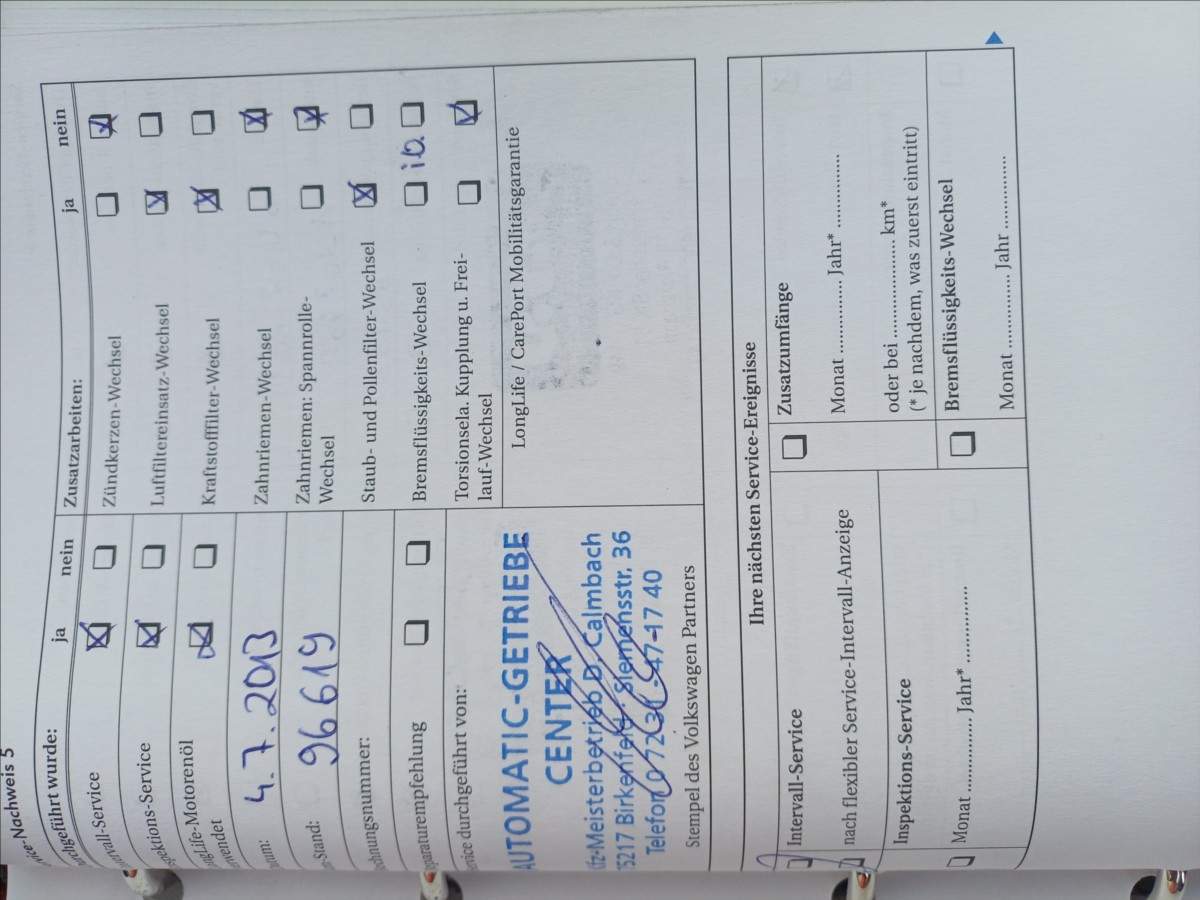 -Nachweis 5
chgeführt wurde:
ja
nein
-Service
-Service
-Motorenöl
4.7.2013
-Stand:
96619
chnungsnummer:
paraturempfehlung
durchgeführt von:
AUTOMATIC-GETRIEBE
CENTER
fz-Meisterbetrieb D. Calmbach
75217 Birkenfeld · Siemensstr. 36
Telefon 0 72 31 - 47 17 40
Stempel des Volkswagen Partners
Zusatzarbeiten:
ja
nein
Zündkerzen-Wechsel
Luftfiltereinsatz-Wechsel
Kraftstofffilter-Wechsel
Zahnriemen-Wechsel
Zahnriemen: Spannrolle-
Wechsel
Staub- und Pollenfilter-Wechsel
Bremsflüssigkeits-Wechsel
i.o.
Torsionsela. Kupplung u. Frei-
lauf-Wechsel
LongLife / CarePort Mobilitätsgarantie
Ihre nächsten Service-Ereignisse
Intervall-Service
nach flexibler Service-Intervall-Anzeige
Inspektions-Service
Monat ................. Jahr* .................
Zusatzumfänge
Monat ............... Jahr* ...............
oder bei ...................... km*
(* je nachdem, was zuerst eintritt)
Bremsflüssigkeits-Wechsel
Monat ............... Jahr ...............